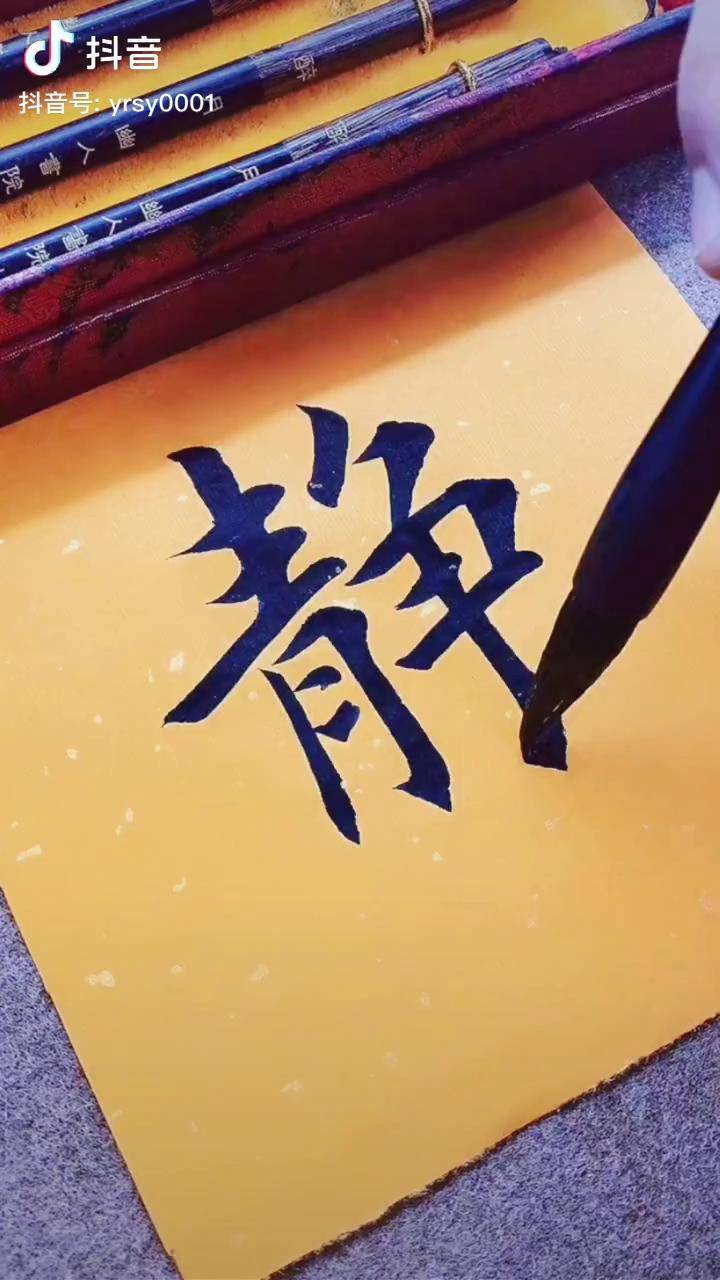 抖音
抖音号: yrsy0001
醉
幽人書院
醉月
幽人書院
静